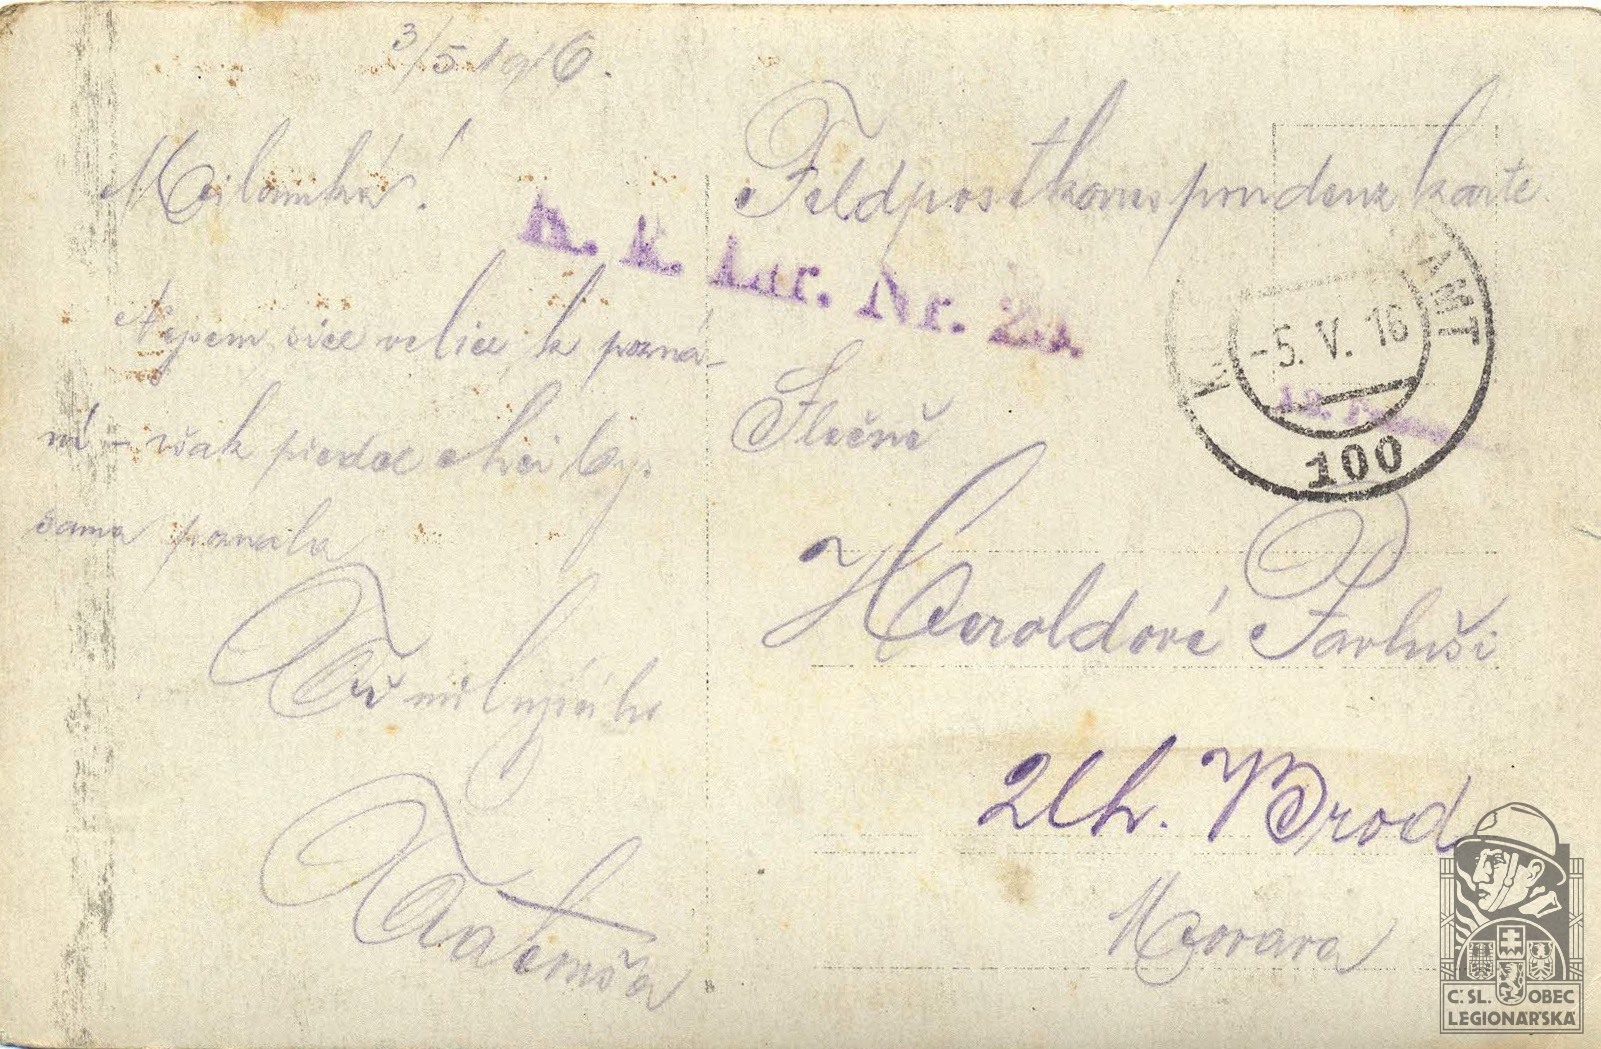 3/5 1916.
Milánká!
Nejsem sice velice k pozná-
ní - však předce chci by
sama poznala
Tvé milujícího
Feldpostkorrespondenz karte
Nr.
AMT
-5. V. 16
100
Slečně
Heroldové Pavluši
Uh. Brod
Morava
Č. SL. OBEC
LEGIONÁŘSKÁ